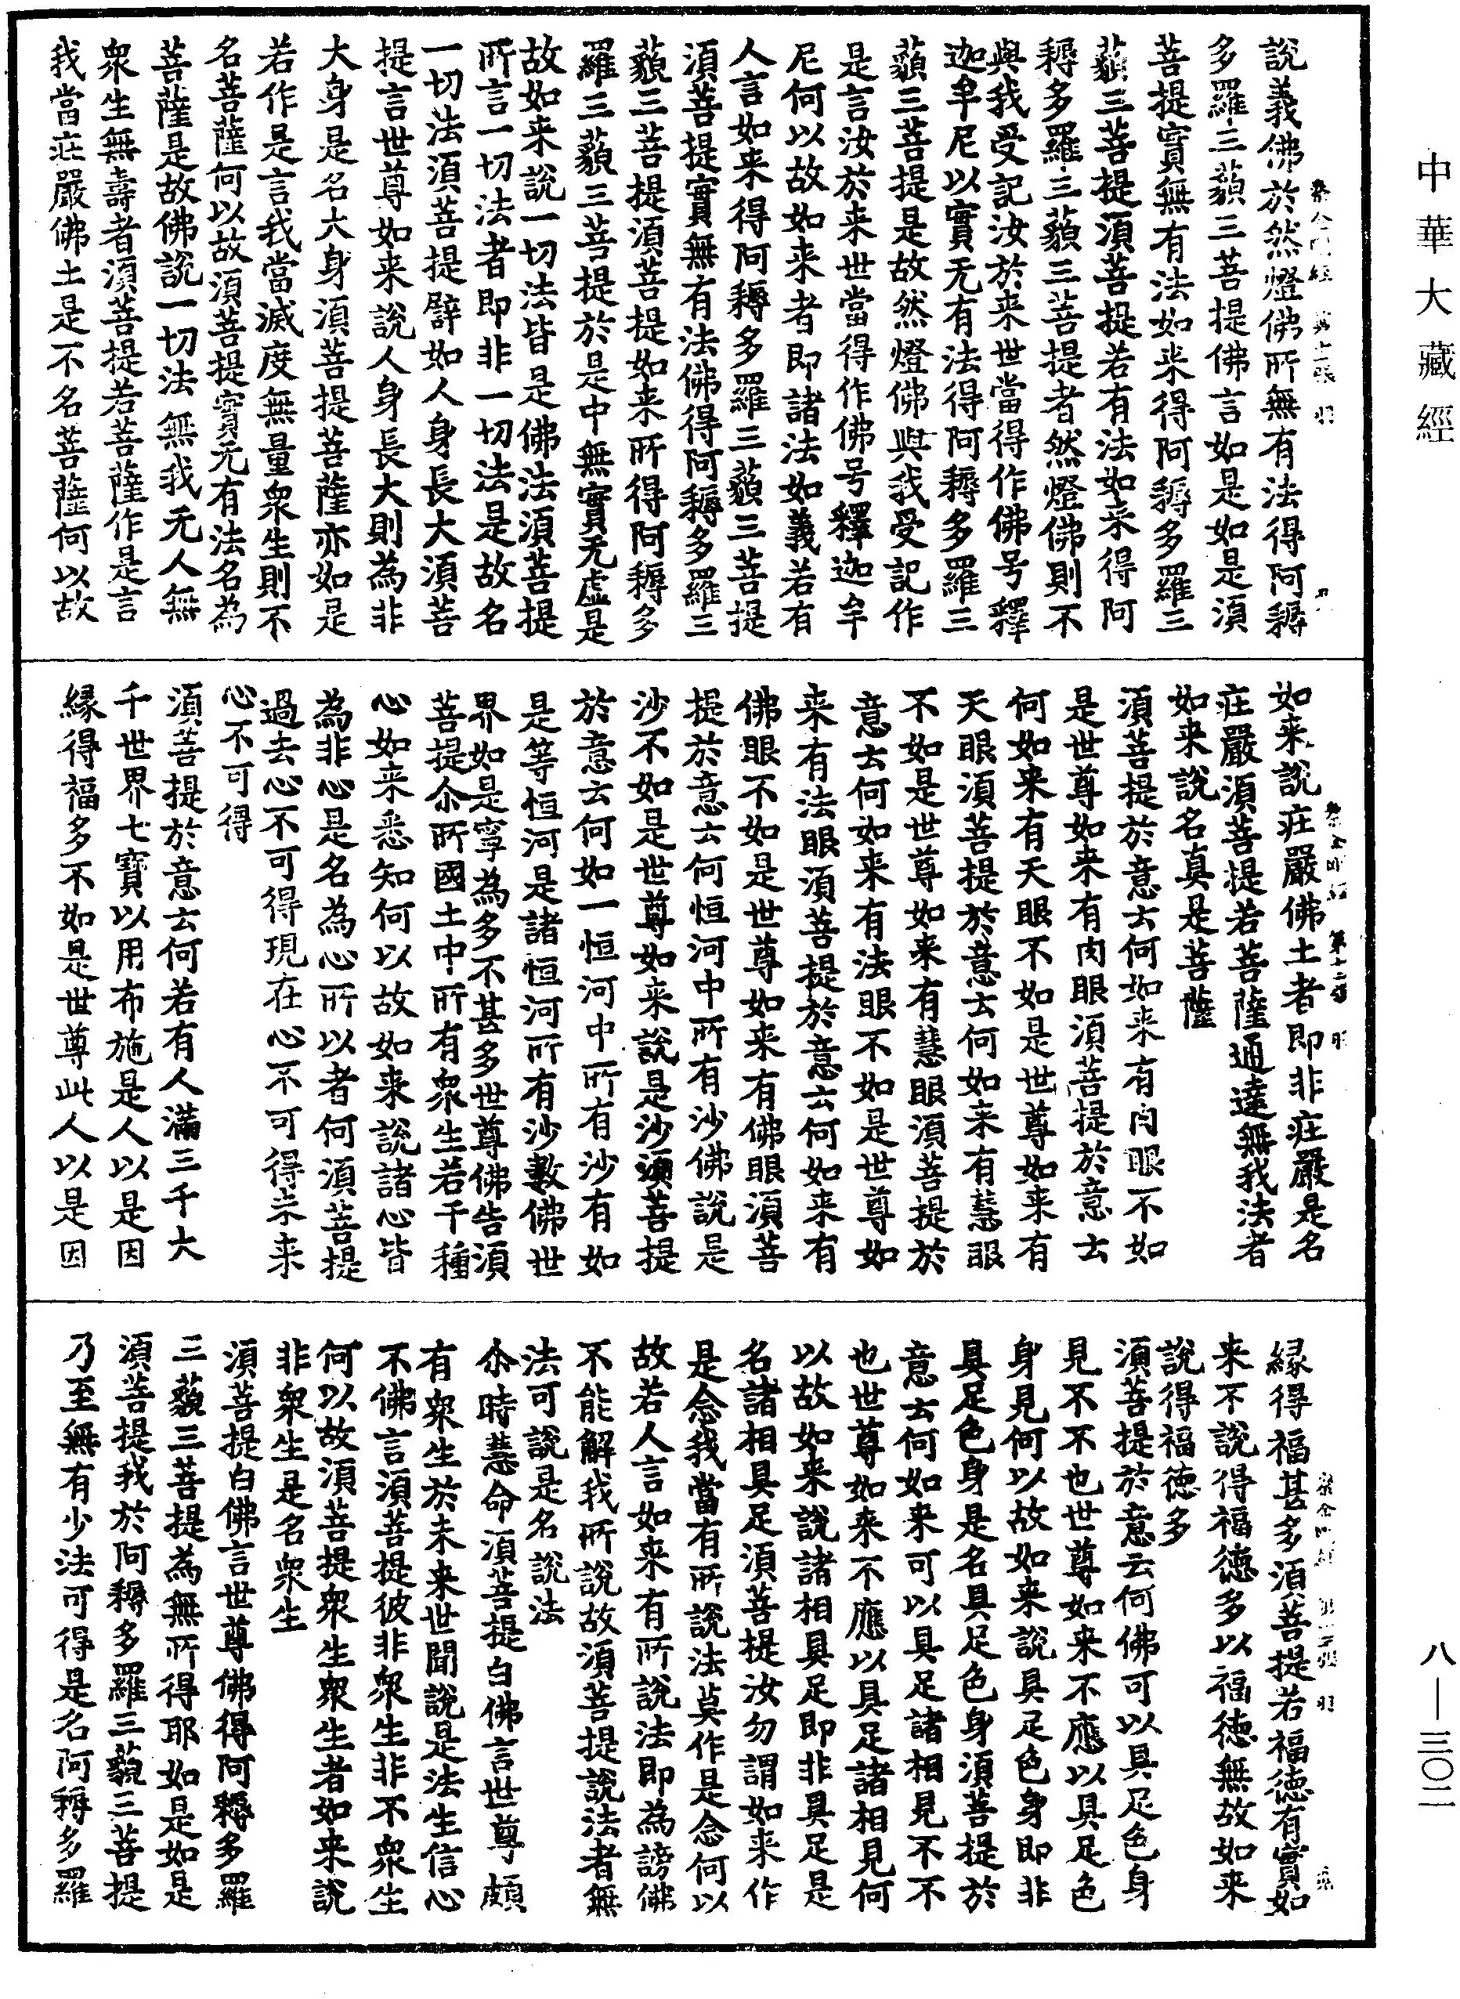 中華大藏經
說義佛於然燈佛所無有法得阿耨
多羅三藐三菩提佛言如是如是須
菩提實無有法如来得阿耨多羅三
藐三菩提須菩提若有法如来得阿
耨多羅三藐三菩提者然燈佛則不
與我受記汝於来世當得作佛号釋
迦牟尼以實无有法得阿耨多羅三
藐三菩提是故然燈佛與我受記作
是言汝於来世當得作佛号釋迦牟
尼何以故如来者即諸法如義若有
人言如来得阿耨多羅三藐三菩提
須菩提實無有法佛得阿耨多羅三
藐三菩提須菩提如来所得阿耨多
羅三藐三菩提於是中無實无虛是
故如来說一切法皆是佛法須菩提
所言一切法者即非一切法是故名
一切法須菩提譬如人身長大須菩
提言世尊如来說人身長大則為非
大身是名大身須菩提菩薩亦如是
若作是言我當滅度無量衆生則不
名菩薩何以故須菩提實无有法名為
菩薩是故佛說一切法無我无人無
衆生無壽者須菩提若菩薩作是言
我當庄嚴佛土是不名菩薩何以故
如来說庄嚴佛土者即非庄嚴是名
庄嚴須菩提若菩薩通達無我法者
如来說名真是菩薩
須菩提於意云何如来有肉眼不如
是世尊如来有肉眼須菩提於意云
何如来有天眼不如是世尊如来有
天眼須菩提於意云何如来有慧眼
不如是世尊如来有慧眼須菩提於
意云何如来有法眼不如是世尊如
来有法眼須菩提於意云何如来有
佛眼不如是世尊如来有佛眼須菩
提於意云何恒河中所有沙佛說是
沙不如是世尊如来說是沙須菩提
於意云何如一恒河中所有沙有如
是等恒河是諸恒河所有沙數佛世
界如是寧為多不甚多世尊佛告須
菩提尒所國土中所有衆生若干種
心如来悉知何以故如来說諸心皆
為非心是名為心所以者何須菩提
過去心不可得現在心不可得未来
心不可得
須菩提於意云何若有人滿三千大
千世界七寶以用布施是人以是因
緣得福多不如是世尊此人以是因
緣得福甚多須菩提若福德有實如
来不說得福德多以福德無故如来
說得福德多
須菩提於意云何佛可以具足色身
見不不也世尊如来不應以具足色
身見何以故如来說具足色身即非
具足色身是名具足色身須菩提於
意云何如来可以具足諸相見不不
也世尊如来不應以具足諸相見何
以故如来說諸相具足即非具足是
名諸相具足須菩提汝勿謂如来作
是念我當有所說法莫作是念何以
故若人言如来有所說法即為謗佛
不能解我所說故須菩提說法者無
法可說是名說法
尒時慧命須菩提白佛言世尊頗
有衆生於未来世聞說是法生信心
不佛言須菩提彼非衆生非不衆生
何以故須菩提衆生衆生者如来說
非衆生是名衆生
須菩提白佛言世尊佛得阿耨多羅
三藐三菩提為無所得耶如是如是
須菩提我於阿耨多羅三藐三菩提
乃至無有少法可得是名阿耨多羅
八—三〇二